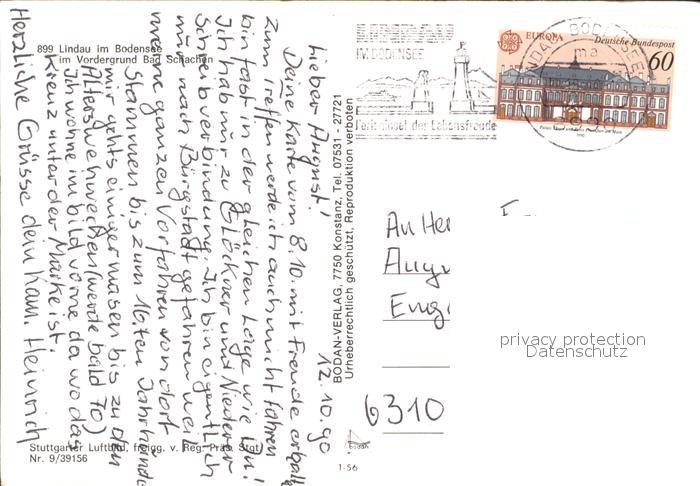 899 Lindau im Bodensee
im Vordergrund Bad Schachen
12.10.90
Lieber August!
Deine Karte vom 8.10. mit Freude erhalt.
zum treffen werde ich auch nicht fahren
bin fast in der gleichen Lage wie Du!
Ich hab nur zu Glöckner und Niederer
Schreibverbindung. Ich bin eigentlich
nur nach Bürgstadt gefahren weil
meine ganzen Vorfahren von dort
Stammen bis zum 16.ten Jahrhunde
mir gehts einigermasen bis zu den
Alterswehwechen (werde bald 70)
Ich wohne im bild vorne da wo das
Kreuz unter der Marke ist.
Herzliche Grüsse dein Kam. Heinrich
Stuttgarter Luftbild, freigg. v. Reg. Präs. Stgt.
Nr. 9/39156
BODAN-VERLAG, 7750 Konstanz, Tel. 07531 - 27721
Urheberrechtlich geschützt, Reproduktion verboten
bodan
1-56
IM BODENSEE
Ferieninsel der Lebensfreude
EUROPA
Deutsche Bundespost
60
1990
An Her
Augu
Eng
6310
privacy protection
Datenschutz